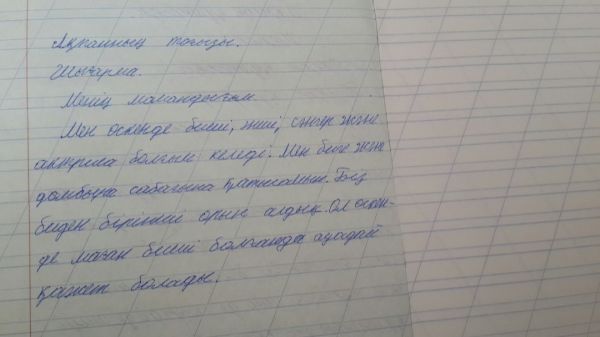 Ақпанның тоғызы.
Шығарма.
Менің мамандығым
Мен өскенде биші, әнші, сәнгер және
актриса болғым келеді. Мен биге және
домбыра сабағына қатысамын. Біз
биден бірінші орын алдық. Ол өскен-
де маған биші болғанда ауадай
қажет болады.